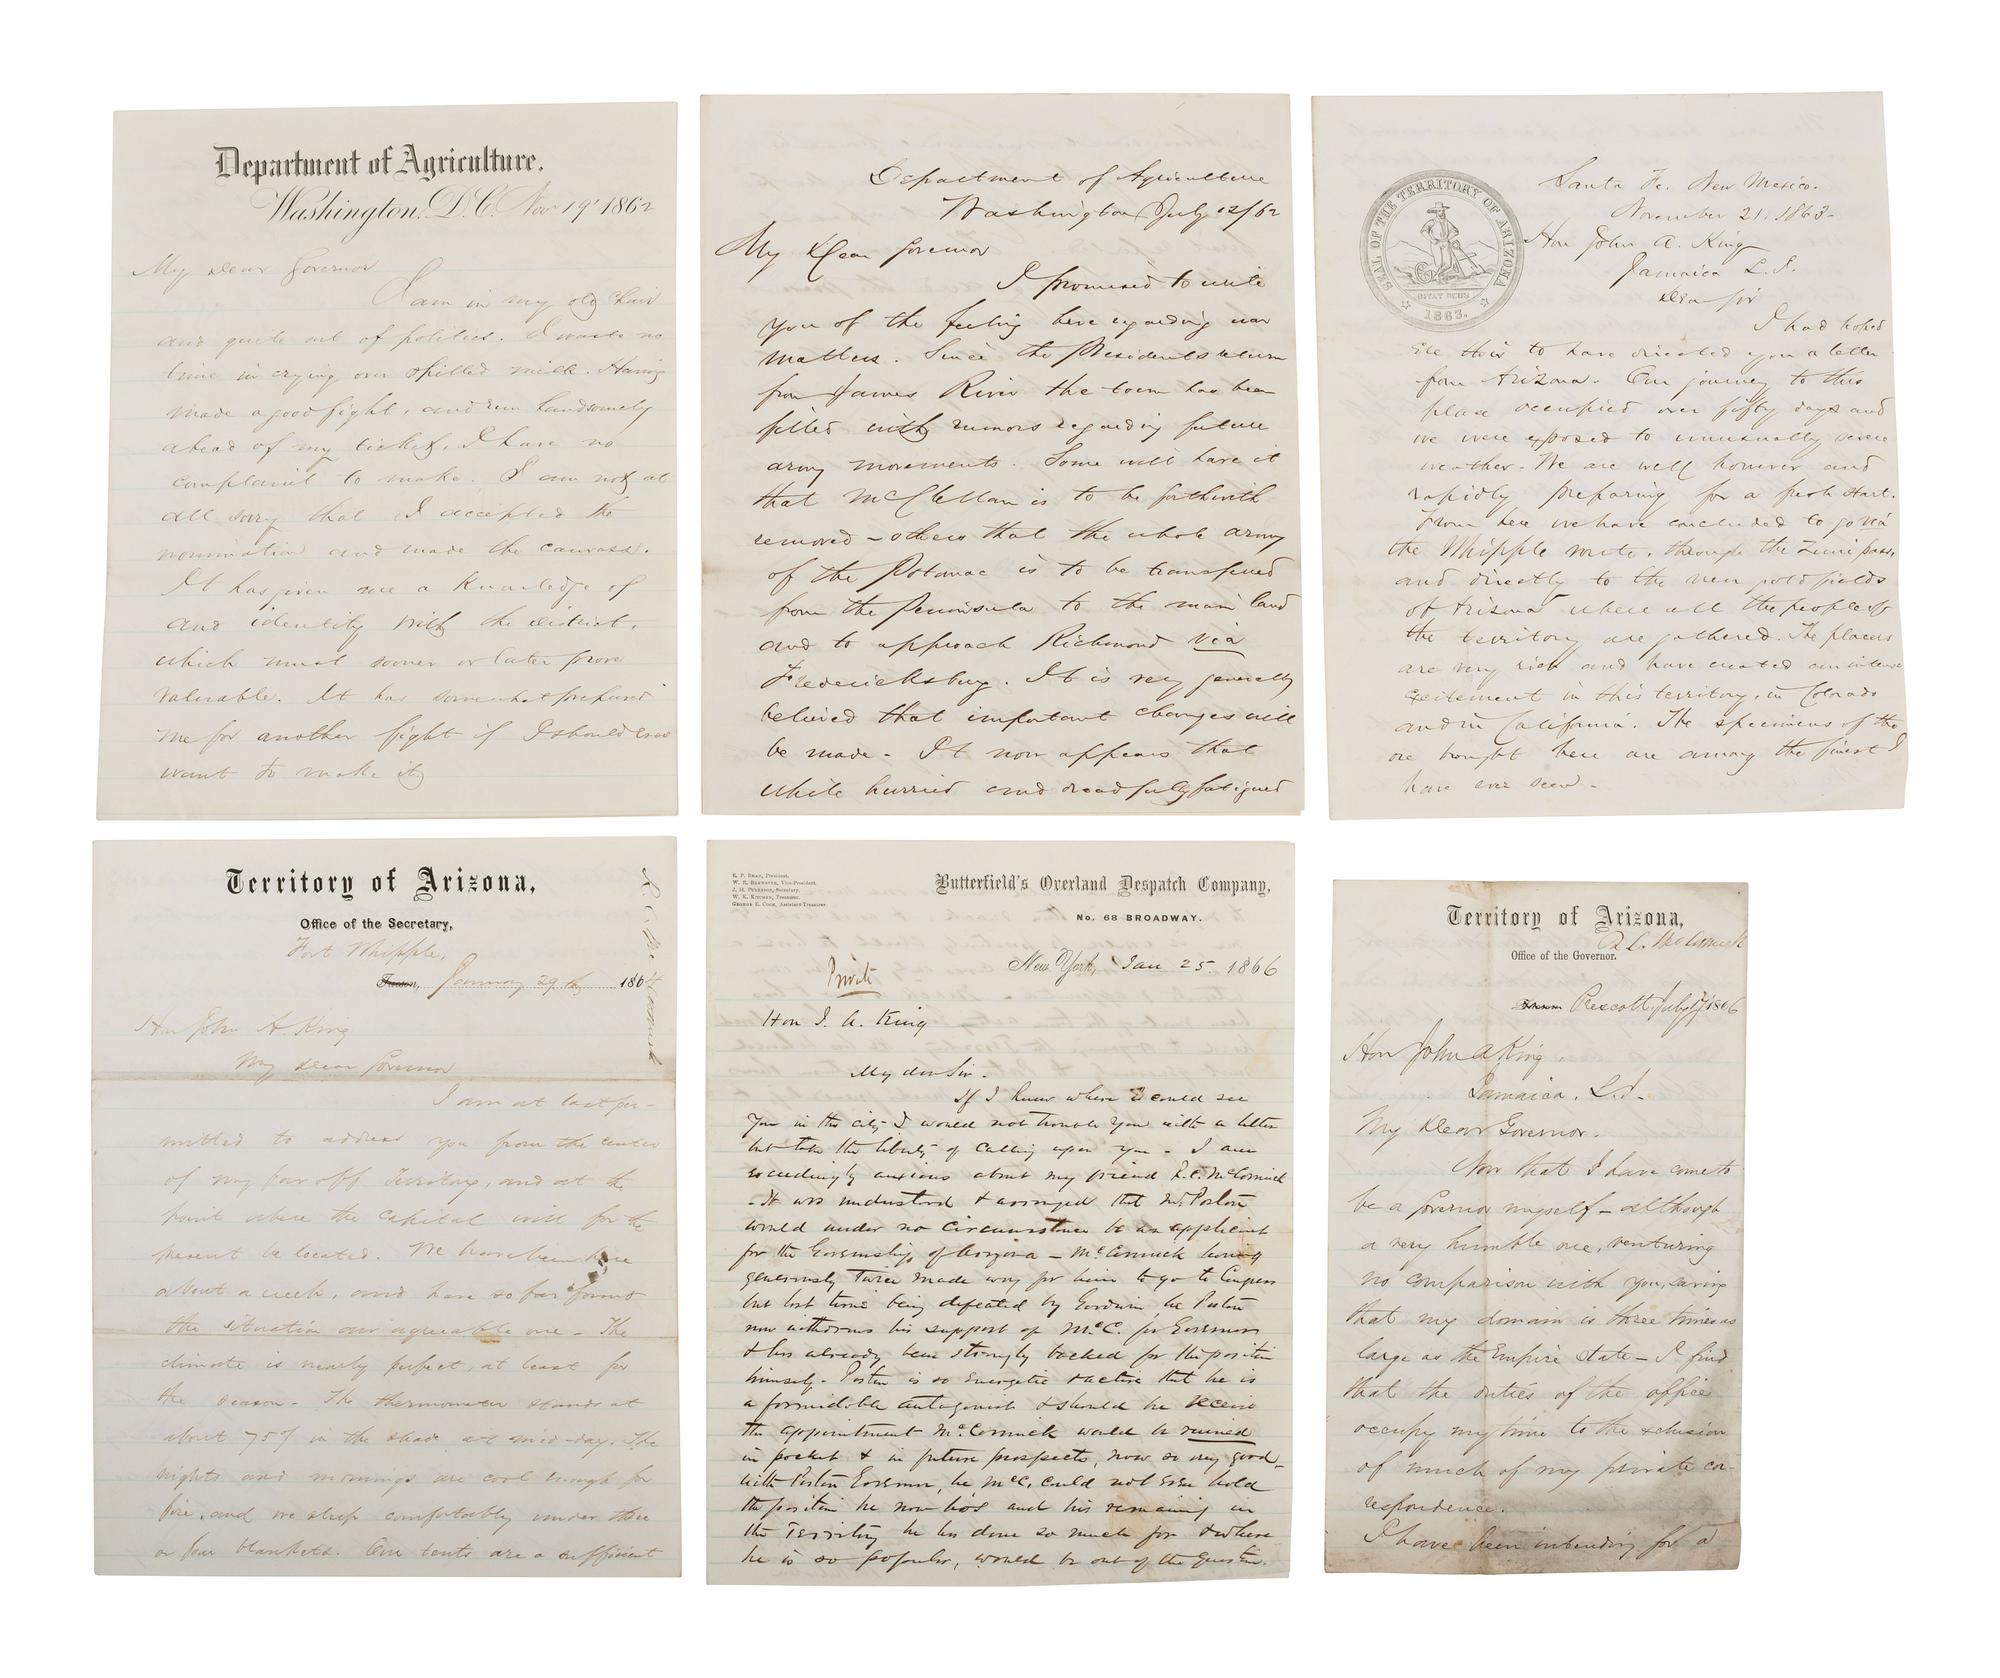 Department of Agriculture.
Washington, D.C. Nov 19' 1862
My dear Governor
I am in my old chair
and quite out of politics. I waste no
time in crying over spilled milk. Having
made a good fight, and run handsomely
ahead of my ticket, I have no
complaint to make. I am not at
all sorry that I accepted the
nomination and made the canvass.
It has given me a knowledge of
and identity with the district,
which must sooner or later prove
valuable. It has somewhat prepared
me for another fight if I should ever
want to make it
Department of Agriculture
Washington July 12/62
My Dear Governor
I promised to write
you of the feeling here regarding war
matters. Since the Presidents return
from James River the town has been
filled with rumors regarding future
army movements. Some will have it
that McClellan is to be forthwith
removed – others that the whole army
of the Potomac is to be transferred
from the Peninsula to the main land
and to approach Richmond via
Fredericksburg. It is very generally
believed that important changes will
be made – It now appears that
while hurried and dreadfully fatigued
SEAL OF THE TERRITORY OF ARIZONA
DITAT DEUS
1863.
Santa Fe. New Mexico.
November 21. 1863-
Hon John A. King
Jamaica L. I.
Dear Sir
I had hoped
ere this to have directed you a letter
from Arizona. Our journey to this
place occupied over fifty days and
we were exposed to unusually severe
weather. We are well however and
rapidly preparing for a fresh start.
From here we have concluded to go via
the Whipple route, through the Zuni pass,
and directly to the new gold fields
of Arizona where all the people of
the territory are gathered. The placers
are very rich and have created an intense
excitement in this territory, in Colorado
and in California. The specimens of the
ore brought here are among the finest I
have ever seen.
Territory of Arizona,
Office of the Secretary,
Fort Whipple,
Tucson, January 29th, 1864
R. C. McCormick
Hon John A King
My dear Governor
I am at last per-
mitted to address you from the center
of my far off Territory, and at the
point where the capital will for the
present be located. We have been here
about a week, and have so far found
the situation an agreeable one – The
climate is nearly perfect, at least for
the season – The thermometer stands at
about 75° in the shade at mid-day. The
nights and mornings are cool enough for
fire, and we sleep comfortably under three
or four blankets. Our tents are a sufficient
President.
Vice-President.
Secretary.
Treasurer.
Assistant Treasurer
Butterfield's Overland Despatch Company,
No. 68 BROADWAY.
Private
New York, Jan 25. 1866
Hon J. A. King
My dear Sir.
If I knew where I could see
you in the city I would not trouble you with a letter
but take the liberty of calling upon you – I am
exceedingly anxious about my friend R. C. McCormick
– It was understood & arranged that Mr. Poston
would under no circumstance be an applicant
for the Governorship of Arizona – McCormick having
generously twice made way for him to go to Congress
but last time being defeated by Goodwin, he Poston
now withdraws his support of McC. for Governor
& has already been strongly backed for the position
himself. Poston is so energetic & active that he is
a formidable antagonist & should he receive
the appointment McCormick would be ruined
in pocket & in future prospects, now so very good –
with Poston Governor, he McC, could not even hold
the position he now has and his remaining in
the Territory he has done so much for & where
he is so popular, would be out of the question.
Territory of Arizona,
R. C. McCormick
Office of the Governor.
Prescott, July 17 1866
Hon John A King.
Jamaica. L.I.
My Dear Governor.
Now that I have come to
be a Governor myself – although
a very humble one, venturing
no comparison with you, saving
that my domain is three times as
large as the Empire State – I find
that the duties of the office
occupy my time to the exclusion
of much of my private cor-
respondence.
I have been intending for a